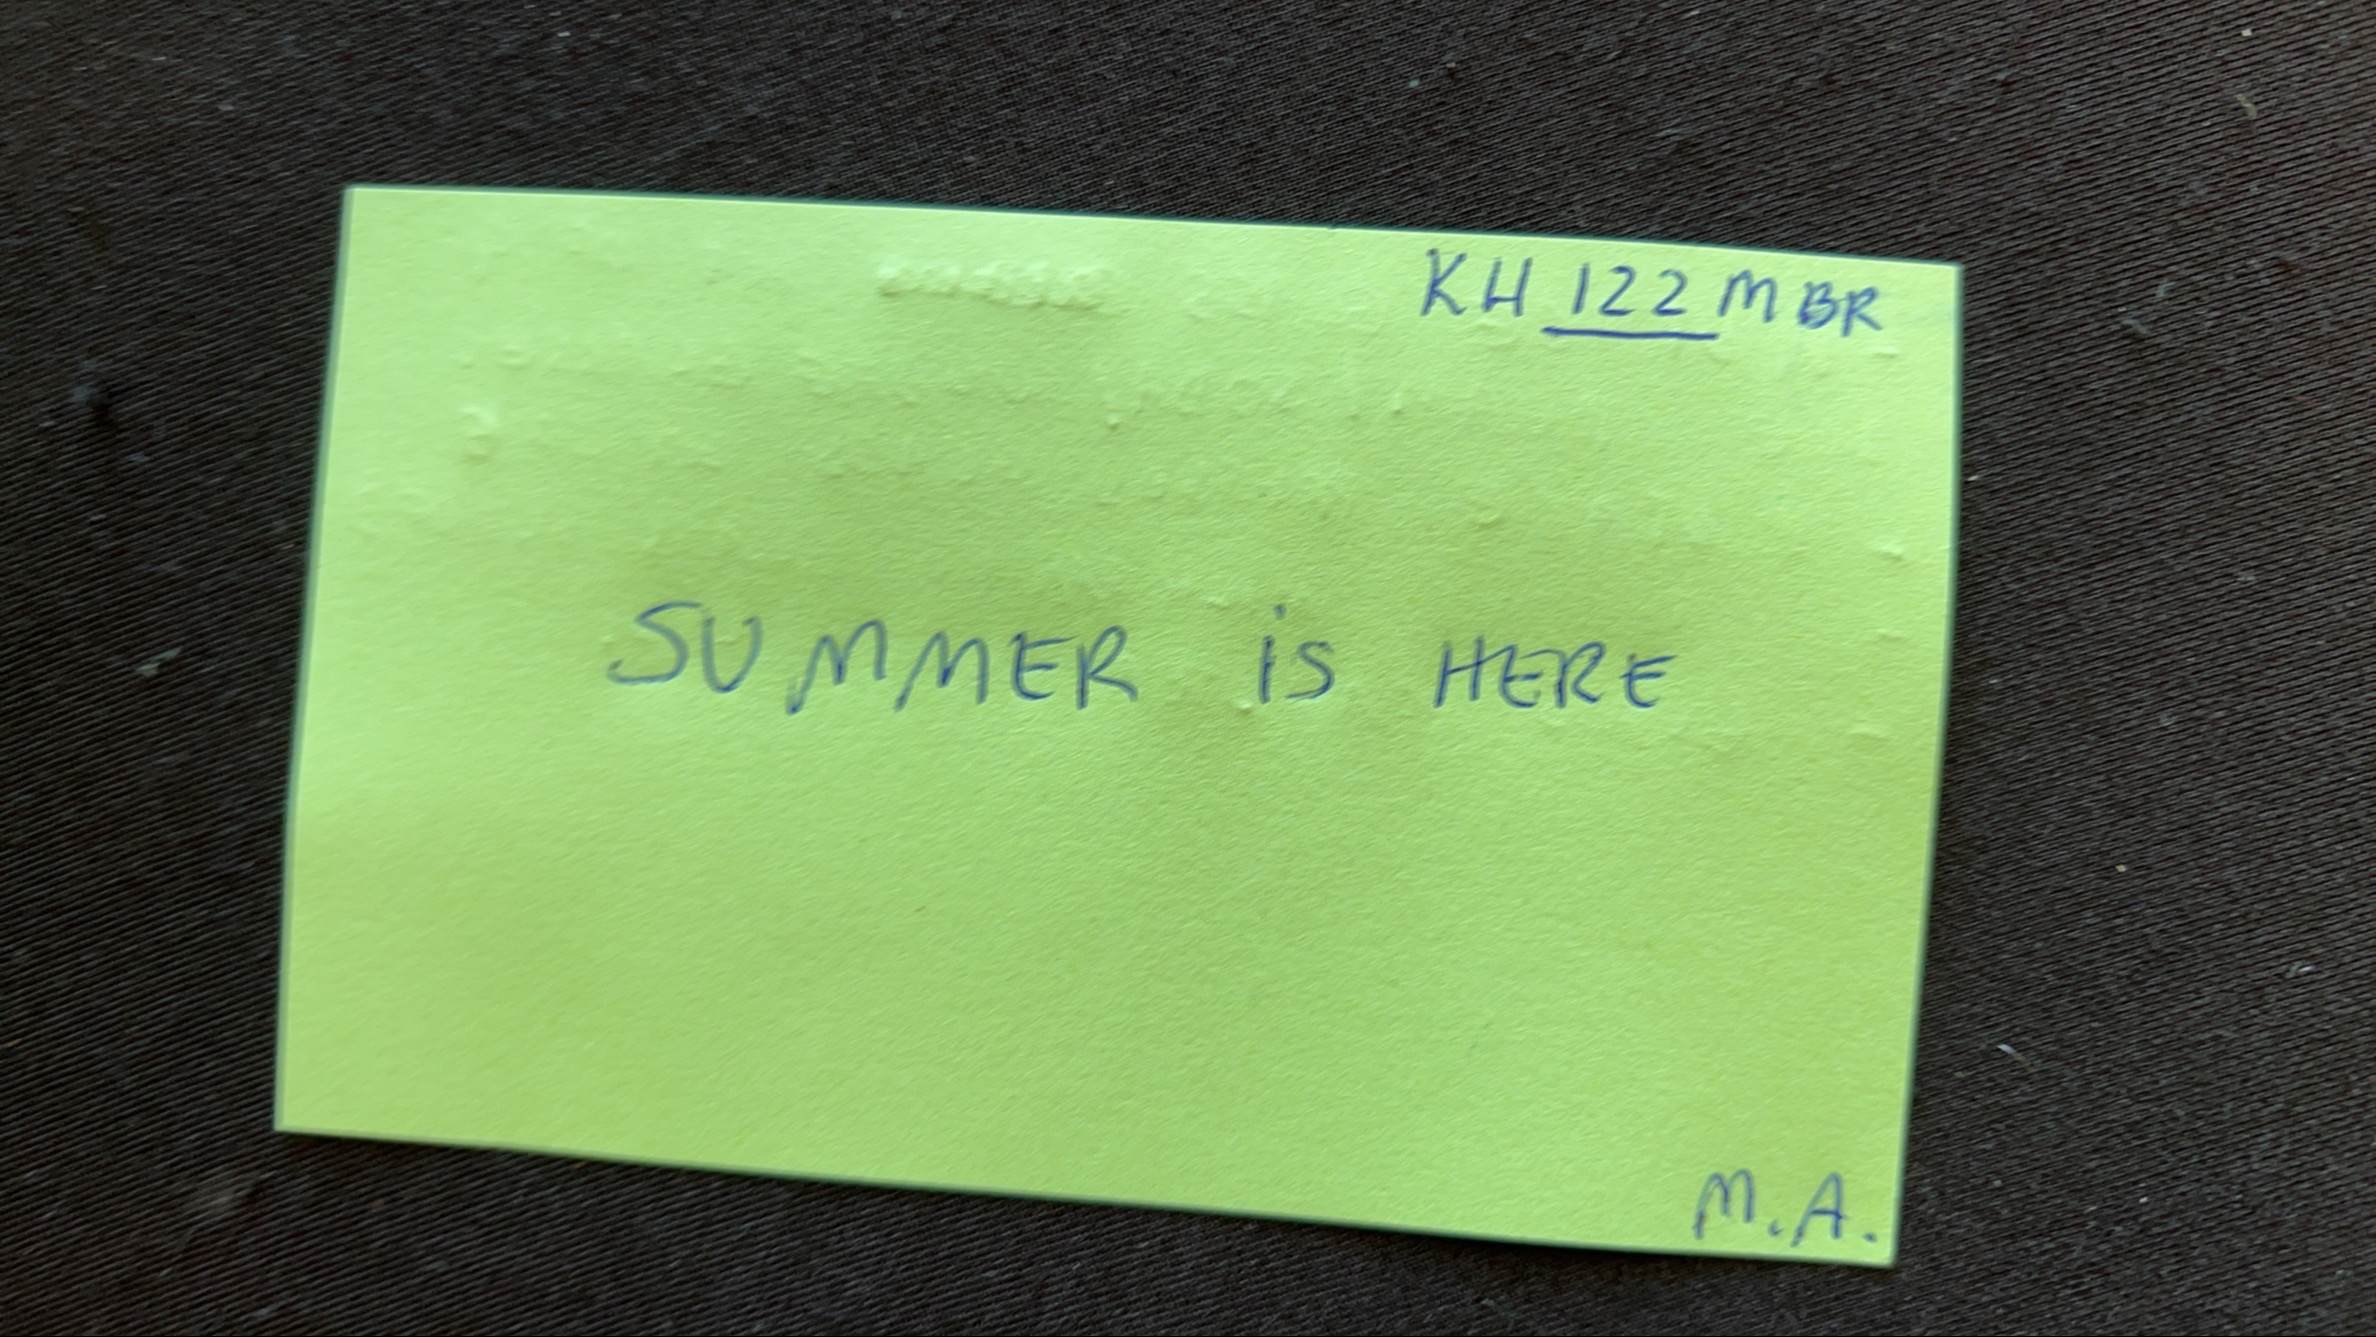 KH 122 M BR
SUMMER is HERE
M.A.